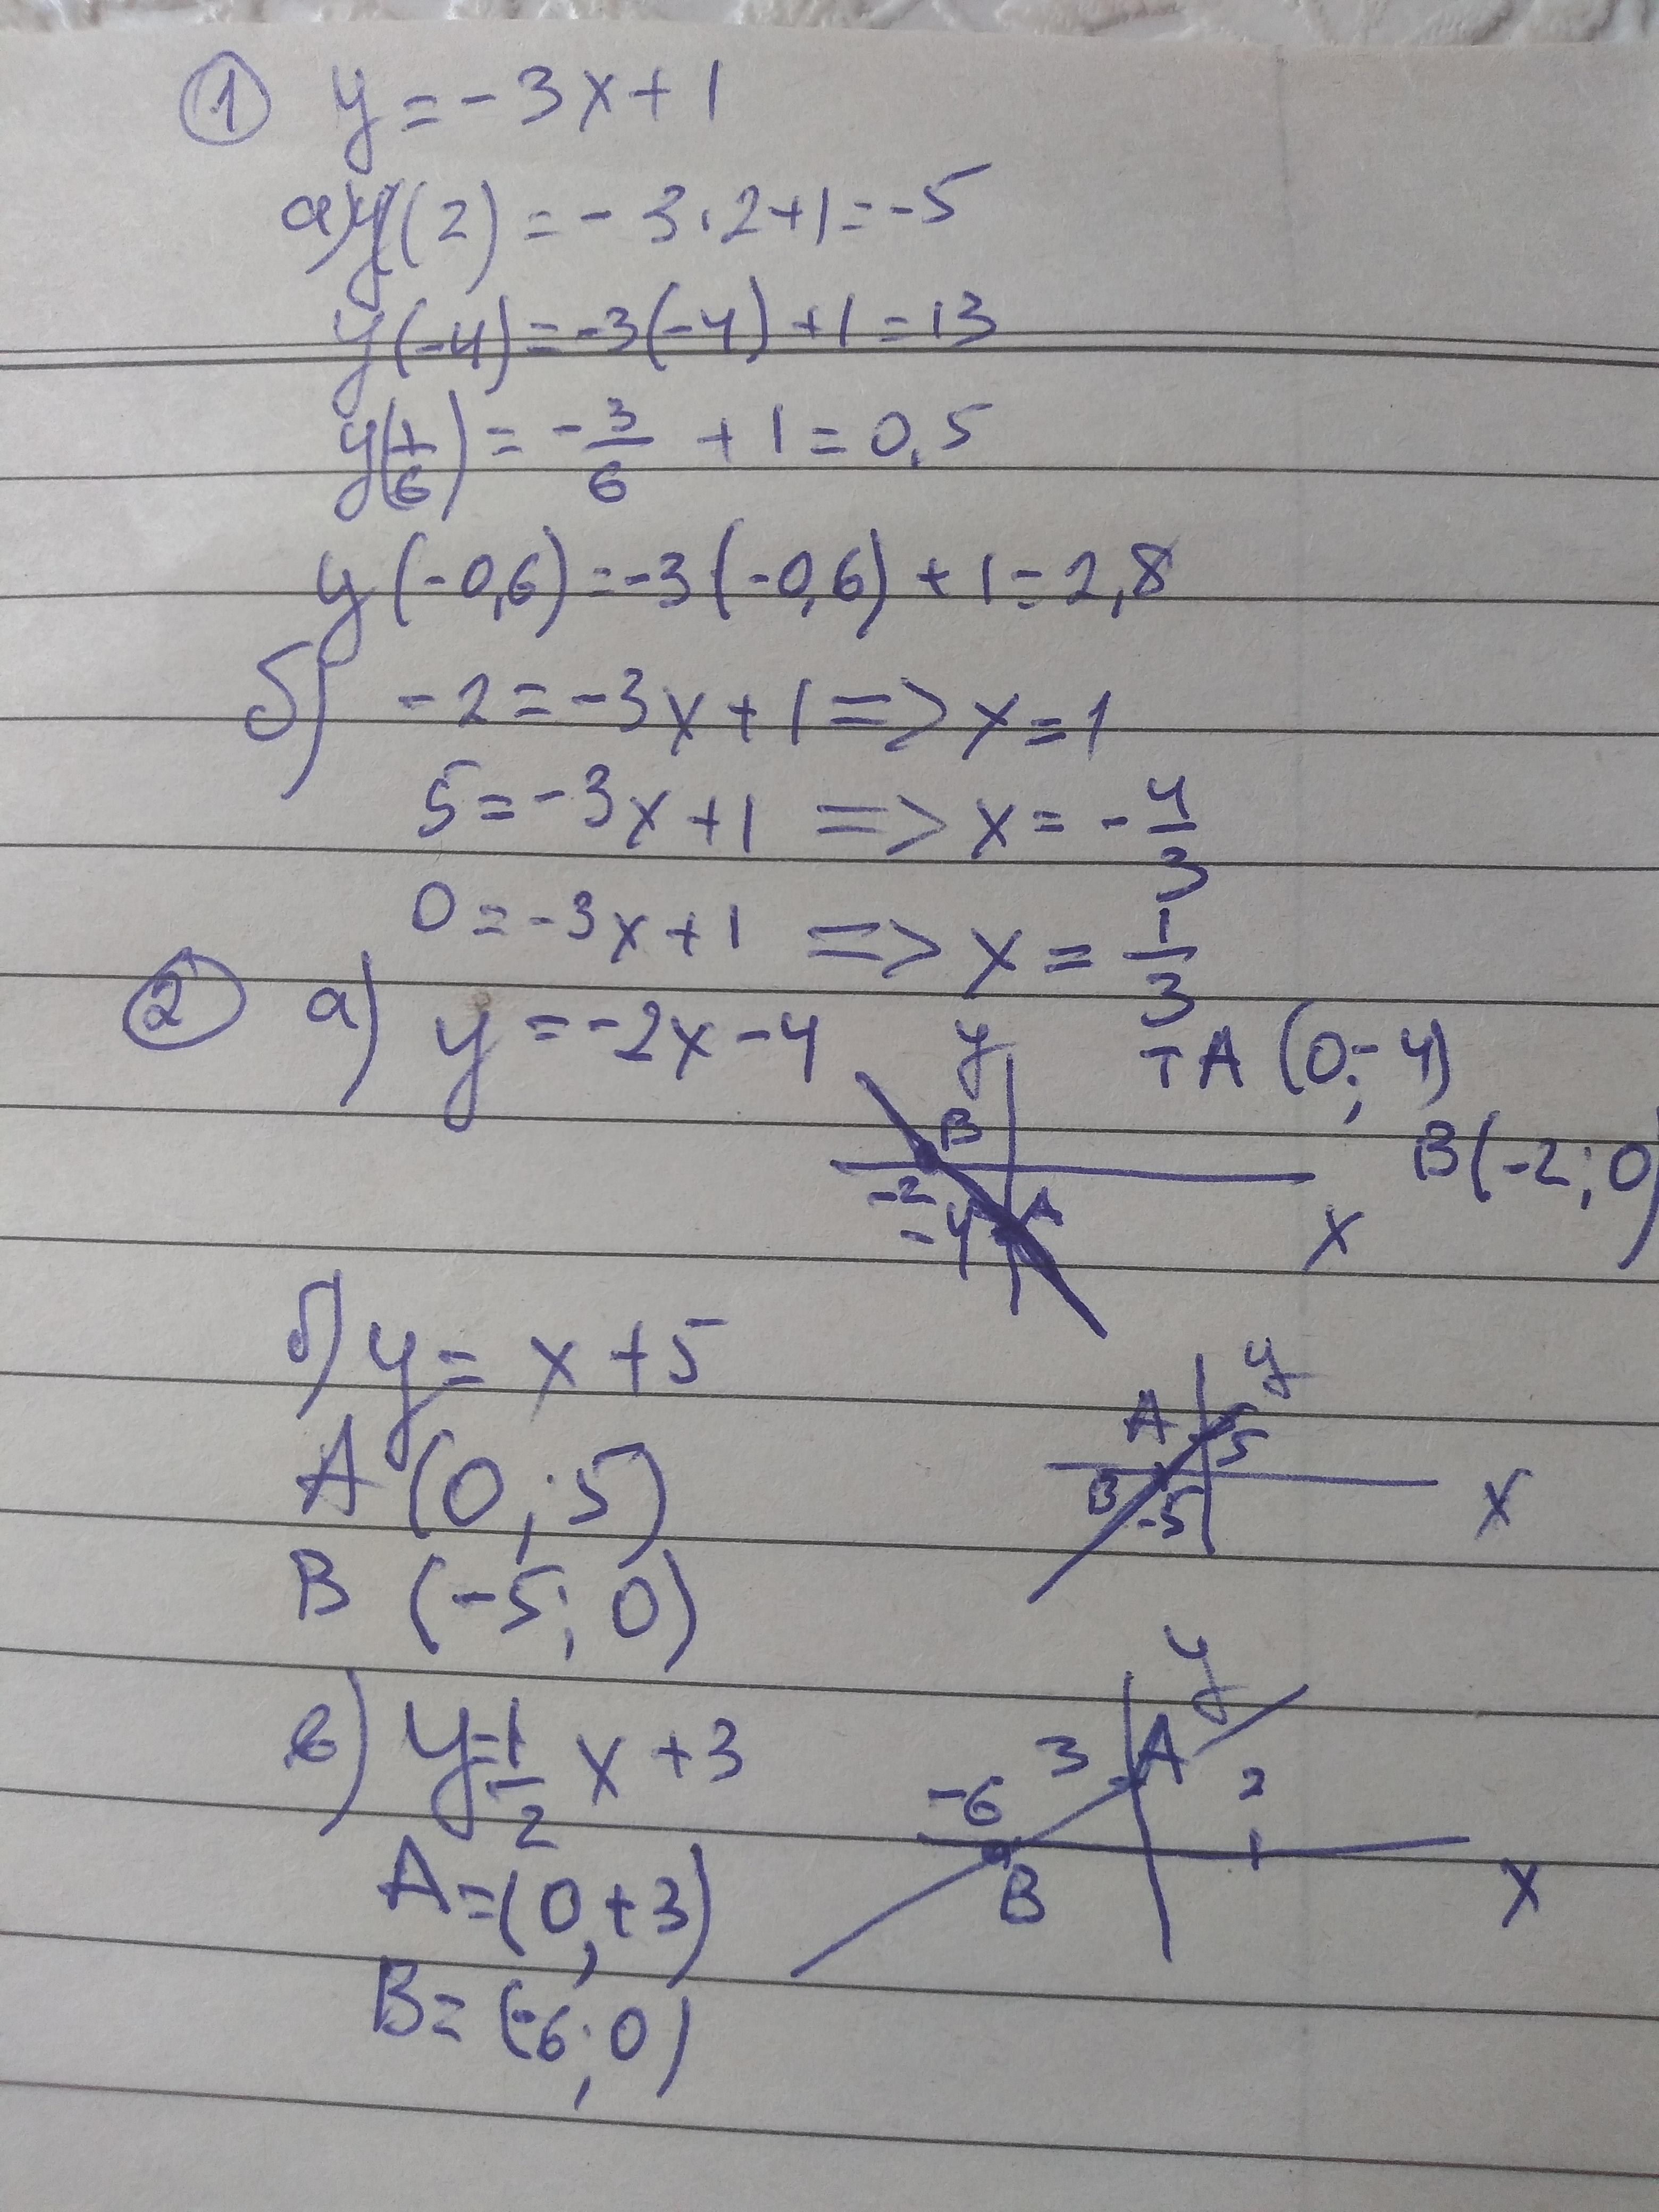 ① y = -3x + 1
а) y(2) = -3·2+1 = -5
y(-4) = -3(-4) + 1 = 13
y(1/6) = -3/6 + 1 = 0,5
y(-0,6) = -3(-0,6) + 1 = 2,8
б) -2 = -3x + 1 => x = 1
5 = -3x + 1 => x = -4/3
0 = -3x + 1 => x = 1/3
② а) y = -2x - 4
y
т А (0; -4)
B (-2; 0)
B
-2
-4
A
x
б) y = x + 5
A (0; 5)
B (-5; 0)
y
A
5
B
-5
x
в) y = 1/2 x + 3
A = (0, +3)
B = (-6; 0)
y
3
A
-6
2
1
B
x